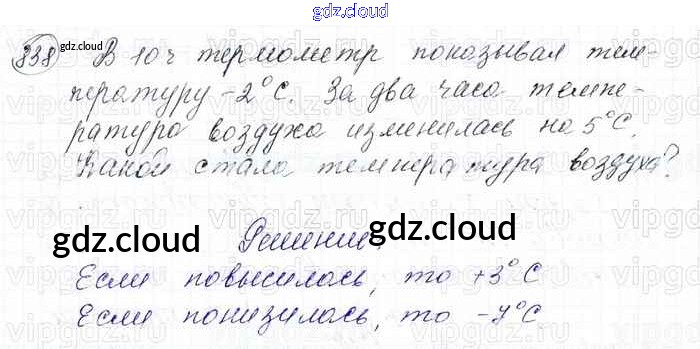 gdz.cloud
838 gdz.cloud В 10 ч термометр показывал тем-
пературу -2°С. За два часа темпе-
ратура воздуха изменилась на 5°С.
Какой стала температура воздуха?
gdz.cloud Решение: gdz.cloud
Если повысилась, то +3°С
Если понизилась, то -7°С